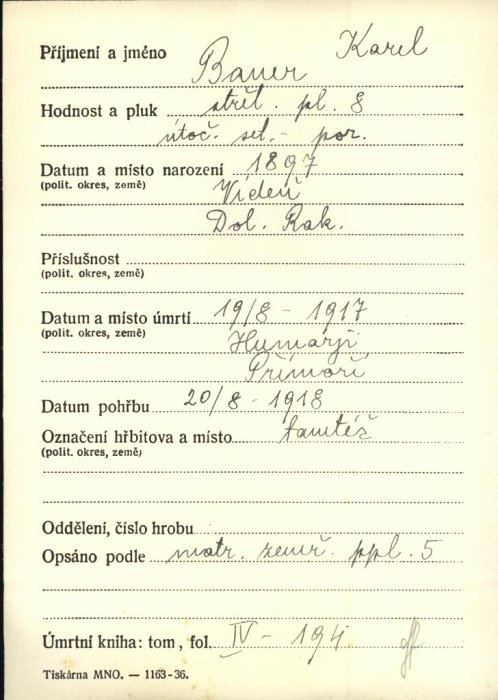 Příjmení a jméno Bauer Karel
Hodnost a pluk střel. pl. 8
útoč. set. - por.
Datum a místo narození 1897
(polit. okres, země) Vídeň
Dol. Rak.
Příslušnost
(polit. okres, země)
Datum a místo úmrtí 19/8 - 1917
(polit. okres, země) Humarji
Přímoří
Datum pohřbu 20/8 - 1918
Označení hřbitova a místo tamtéž
(polit. okres, země)
Oddělení, číslo hrobu
Opsáno podle matr. zemř. ppl. 5
Úmrtní kniha: tom, fol. IV - 194
Tiskárna MNO. — 1163-36.